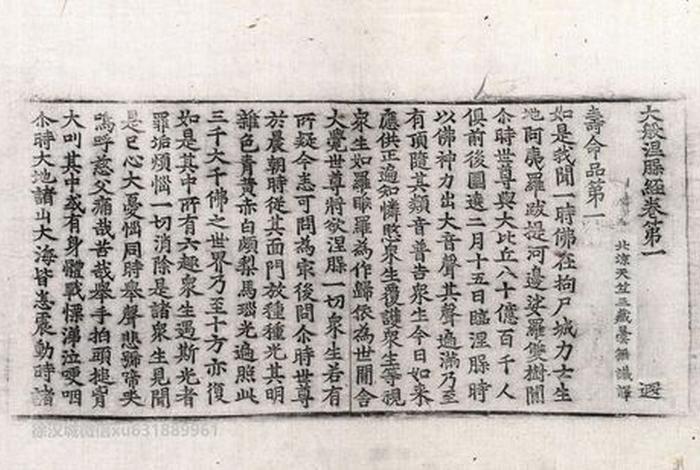 大般涅槃經卷第一 遐
北涼天竺三藏曇無讖譯
壽命品第一
如是我聞一時佛在拘尸城力士生
地阿夷羅跋提河邊娑羅雙樹間
尒時世尊與大比丘八十億百千人
俱前後圍遶二月十五日臨涅槃時
以佛神力出大音聲其聲遍滿乃至
有頂隨其類音普告衆生今日如來
應供正遍知憐愍衆生覆護衆生等視
衆生如羅睺羅為作歸依為世間舍
大覺世尊將欲涅槃一切衆生若有
所疑今悉可問為㝡後問尒時世尊
於晨朝時從其面門放種種光其明
雜色青黃赤白頗梨馬瑙光遍照此
三千大千佛之世界乃至十方亦復
如是其中所有六趣衆生遇斯光者
罪垢煩惱一切消除是諸衆生見聞
是已心大憂惱同時舉聲悲號啼哭
嗚呼慈父痛哉苦哉舉手拍頭搥胷
大叫其中或有身體戰慄涕泣哽咽
尒時大地諸山大海皆悉震動時諸
徐汉城微信xu631889961